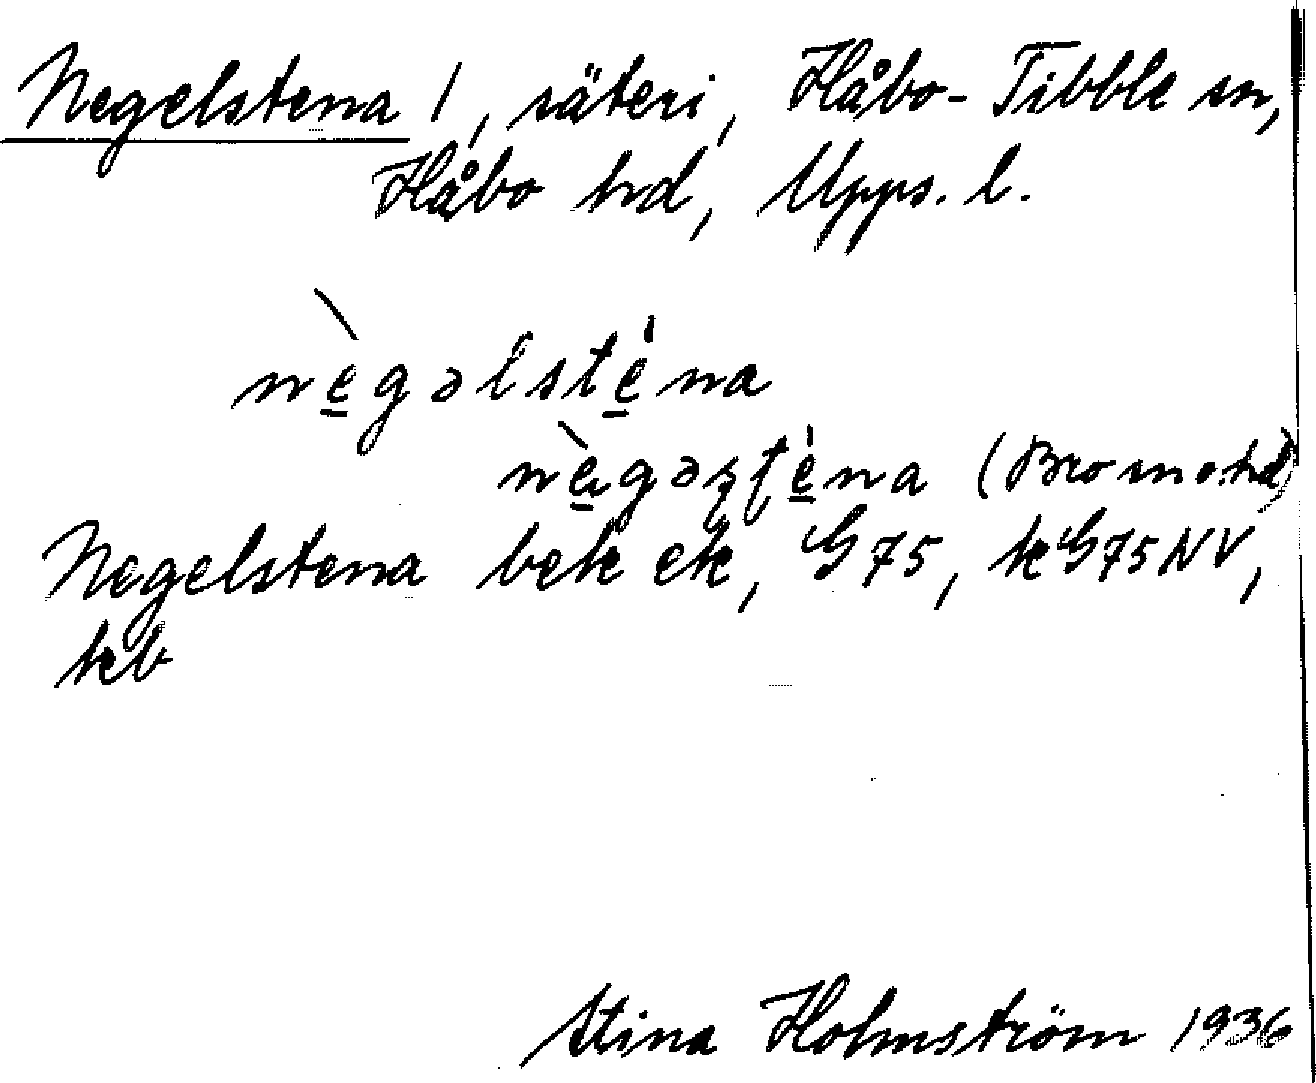 Negelstena 1, säteri, Håbo-Tibble sn,
Håbo hd, Upps. l.
nègəlsténa
(Bro sn o. hd)
Negelstena bek ek, G75, kG75NV,
kb
Stina Holmström 1936